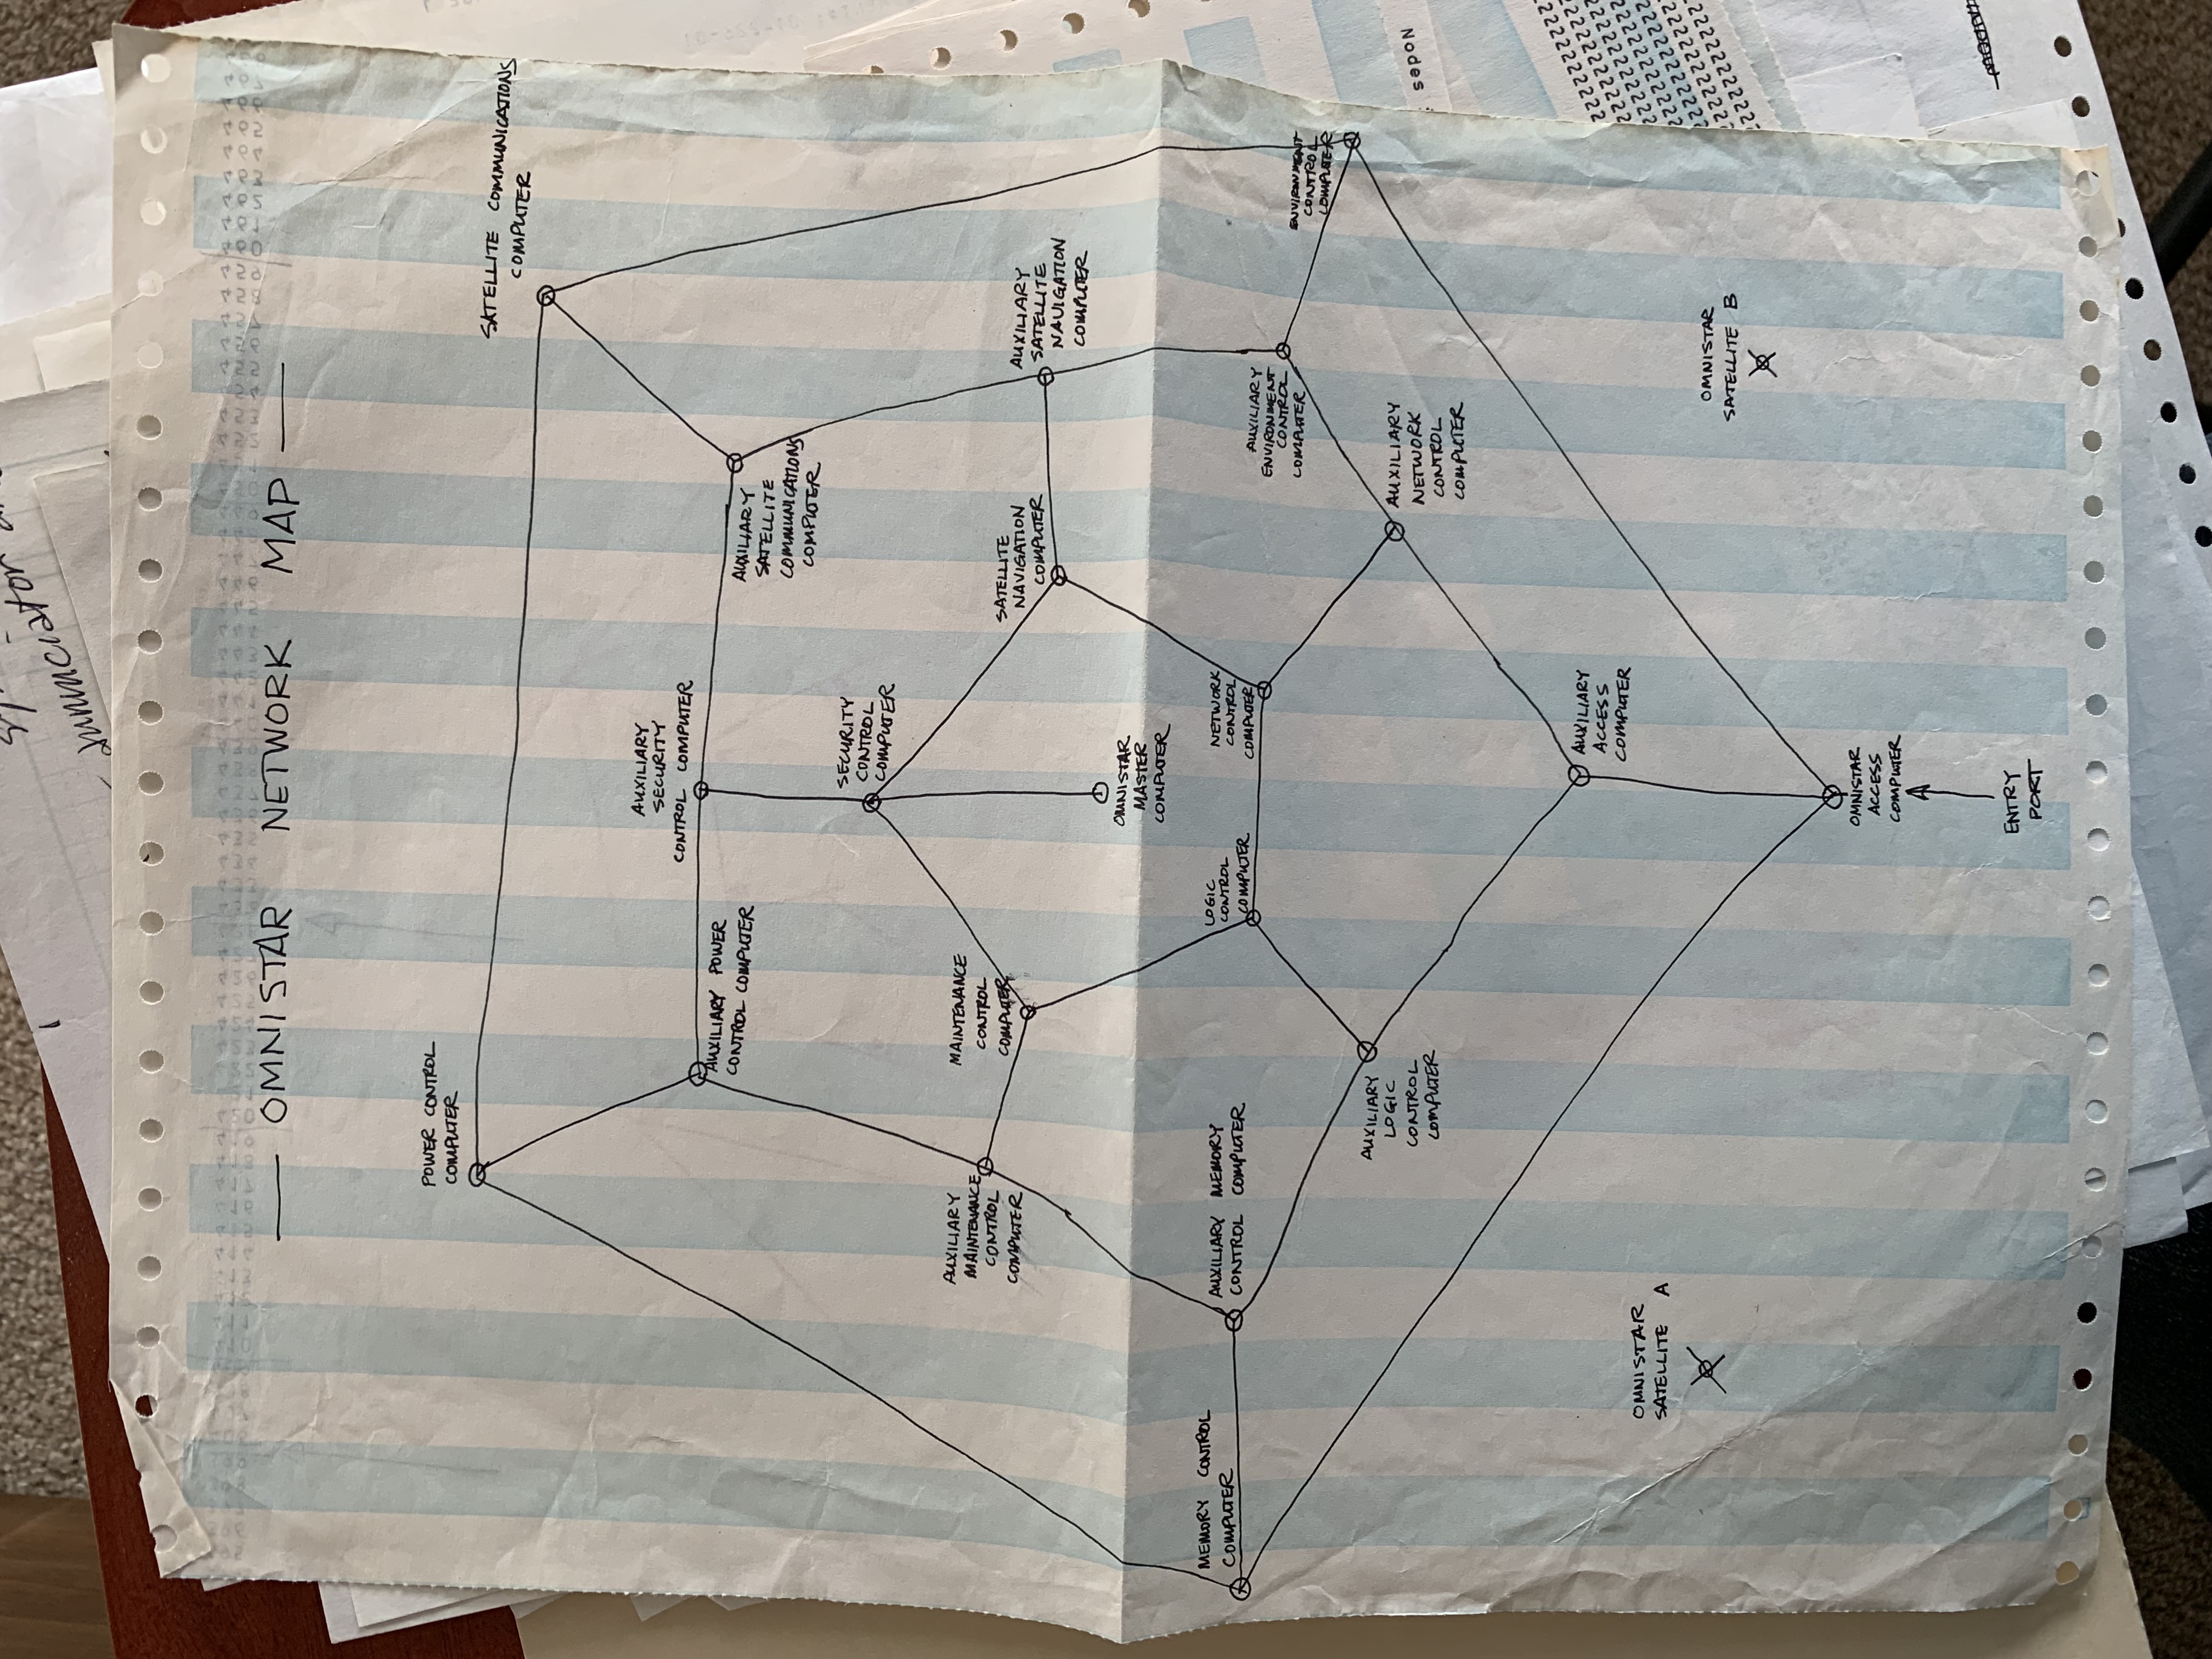 annunciator
— OMNISTAR NETWORK MAP —
POWER CONTROL
COMPUTER
SATELLITE COMMUNICATIONS
COMPUTER
AUXILIARY
SECURITY
CONTROL COMPUTER
AUXILIARY POWER
CONTROL COMPUTER
AUXILIARY
SATELLITE
COMMUNICATIONS
COMPUTER
SECURITY
CONTROL
COMPUTER
AUXILIARY
MAINTENANCE
CONTROL
COMPUTER
MAINTENANCE
CONTROL
COMPUTER
SATELLITE
NAVIGATION
COMPUTER
AUXILIARY
SATELLITE
NAVIGATION
COMPUTER
OMNISTAR
MASTER
COMPUTER
MEMORY CONTROL
COMPUTER
AUXILIARY MEMORY
CONTROL COMPUTER
LOGIC
CONTROL
COMPUTER
NETWORK
CONTROL
COMPUTER
AUXILIARY
ENVIRONMENT
CONTROL
COMPUTER
ENVIRONMENT
CONTROL
COMPUTER
AUXILIARY
LOGIC
CONTROL
COMPUTER
AUXILIARY
NETWORK
CONTROL
COMPUTER
Nodes
AUXILIARY
ACCESS
COMPUTER
OMNISTAR
SATELLITE A
OMNISTAR
SATELLITE B
OMNISTAR
ACCESS
COMPUTER
ENTRY
PORT